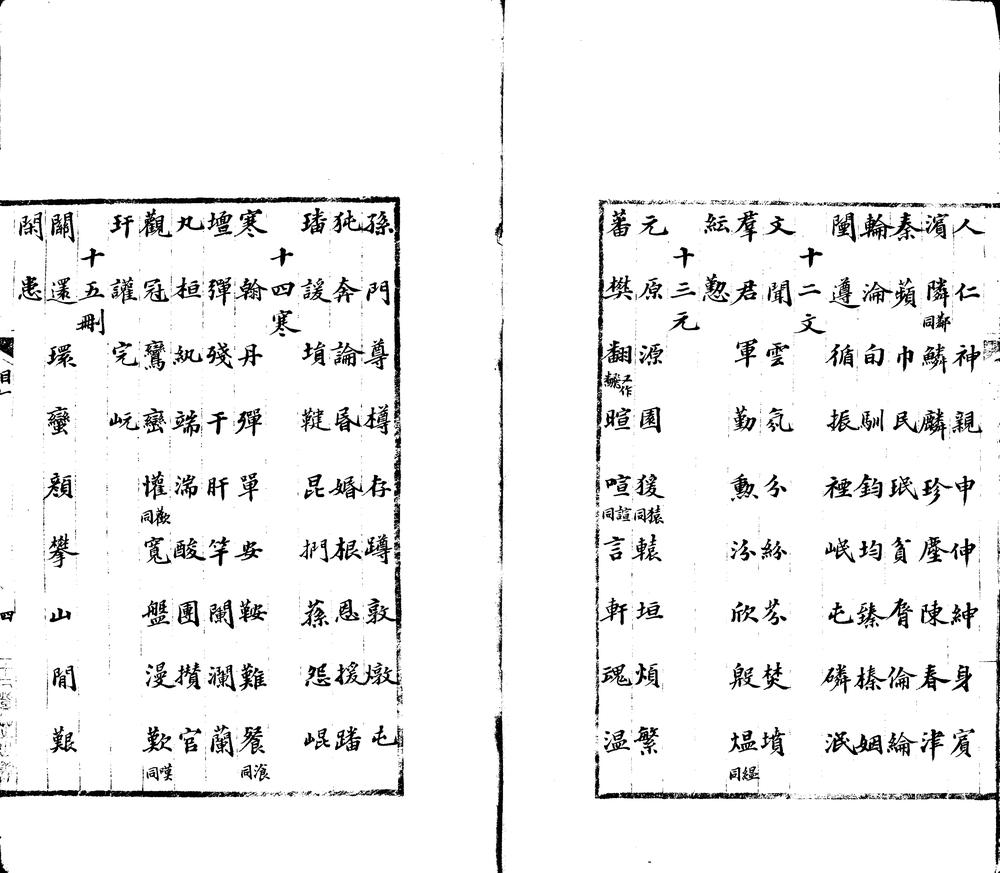 人仁神親申伸紳身賓
濱隣同鄰鱗麟珍塵陳春津
秦蘋巾民珉貧脣倫綸
輪淪旬馴鈞均臻榛姻
闉遵循振禋岷屯磷泯
十二文
文聞雲氛分紛芬焚墳
羣君軍勤勲汾欣殷熅同縕
紜懃
十三元
元原源園猨同猿轅垣煩繁
蕃樊翻暄喧同諠言軒魂温
孫門尊樽存蹲敦墩屯
㹠奔論昏婚根恩援蹯
璠諼塤鞬昆捫蓀怨崐
十四寒
寒翰丹彈單安鞍難餐同湌
壇彈殘干肝竿闌瀾蘭
丸桓紈端湍酸團攅官
觀冠鸞巒懽同歡寛盤漫歎同嘆
玕讙完岏
十五刪
關還環蠻顔攀山間艱
閑患
目一
四